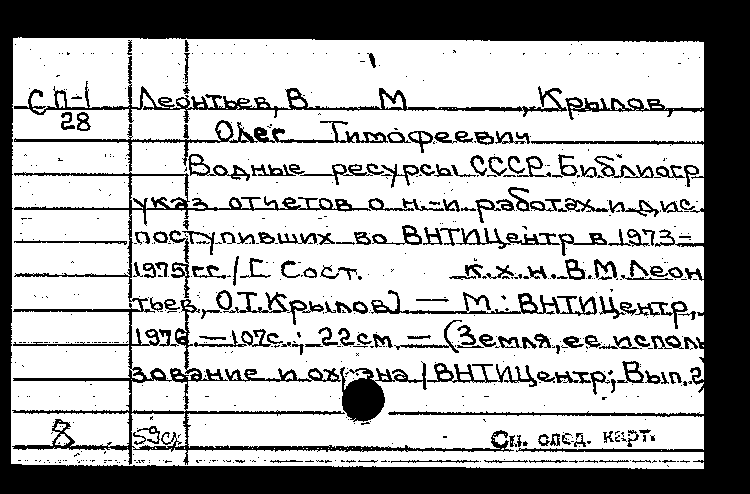 СП-1 Леонтьев, В. М , Крылов,
28 Олег Тимофеевич
Водные ресурсы СССР. Библиогр
указ. отчетов о н.-и работах и дис.
поступивших во ВНТИЦентр в 1973-
1975 гг. / [ Сост. к.х.н. В.М. Леон
тьев, О.Т. Крылов] — М.: ВНТИЦентр,
1976. — 107с.; 22см — (Земля, ее исполь
зование и охрана / ВНТИЦентр; Вып. 2)
8 См. след. карт.